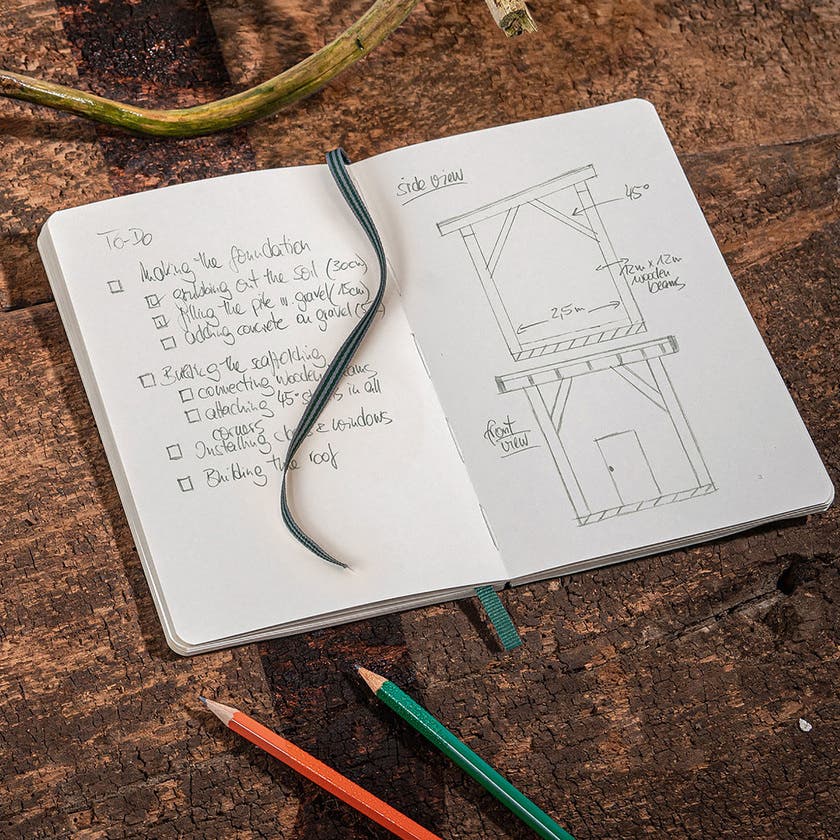 To-Do
Making the foundation
out the soil (30cm)
filling the pile w. gravel (15cm)
adding concrete on gravel
Building the scaffolding
connecting wooden
attaching 45° in all
corners
Installing & windows
Building the roof
side view
45°
12m x 12m
wooden
beams
2,5m
front
view